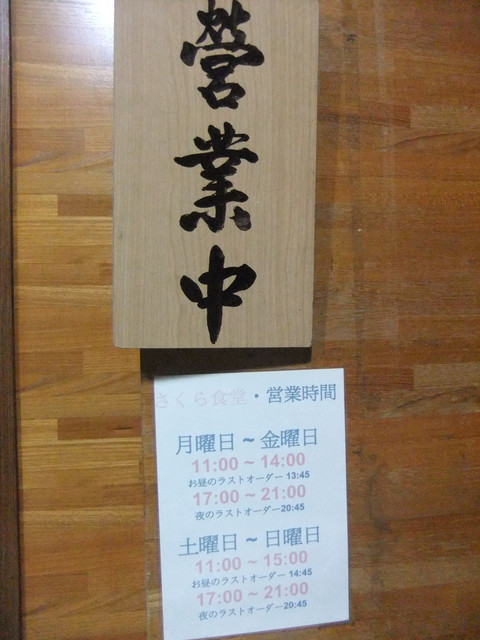 營業中
さくら食堂・営業時間
月曜日～金曜日
11:00～14:00
お昼のラストオーダー 13:45
17:00～21:00
夜のラストオーダー20:45
土曜日～日曜日
11:00～15:00
お昼のラストオーダー 14:45
17:00～21:00
夜のラストオーダー20:45